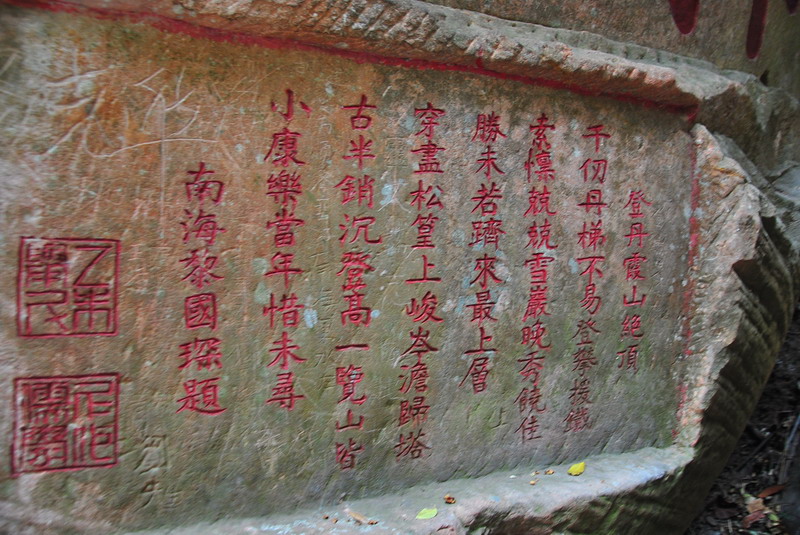 登丹霞山絕頂
千仞丹梯不易登攀援鐵
索懍兢兢雪巖晚秀饒佳
勝未若躋來最上層
穿盡松篁上峻岑澹歸塔
古半銷沉登高一覽山皆
小康樂當年惜未尋
南海黎國琛題